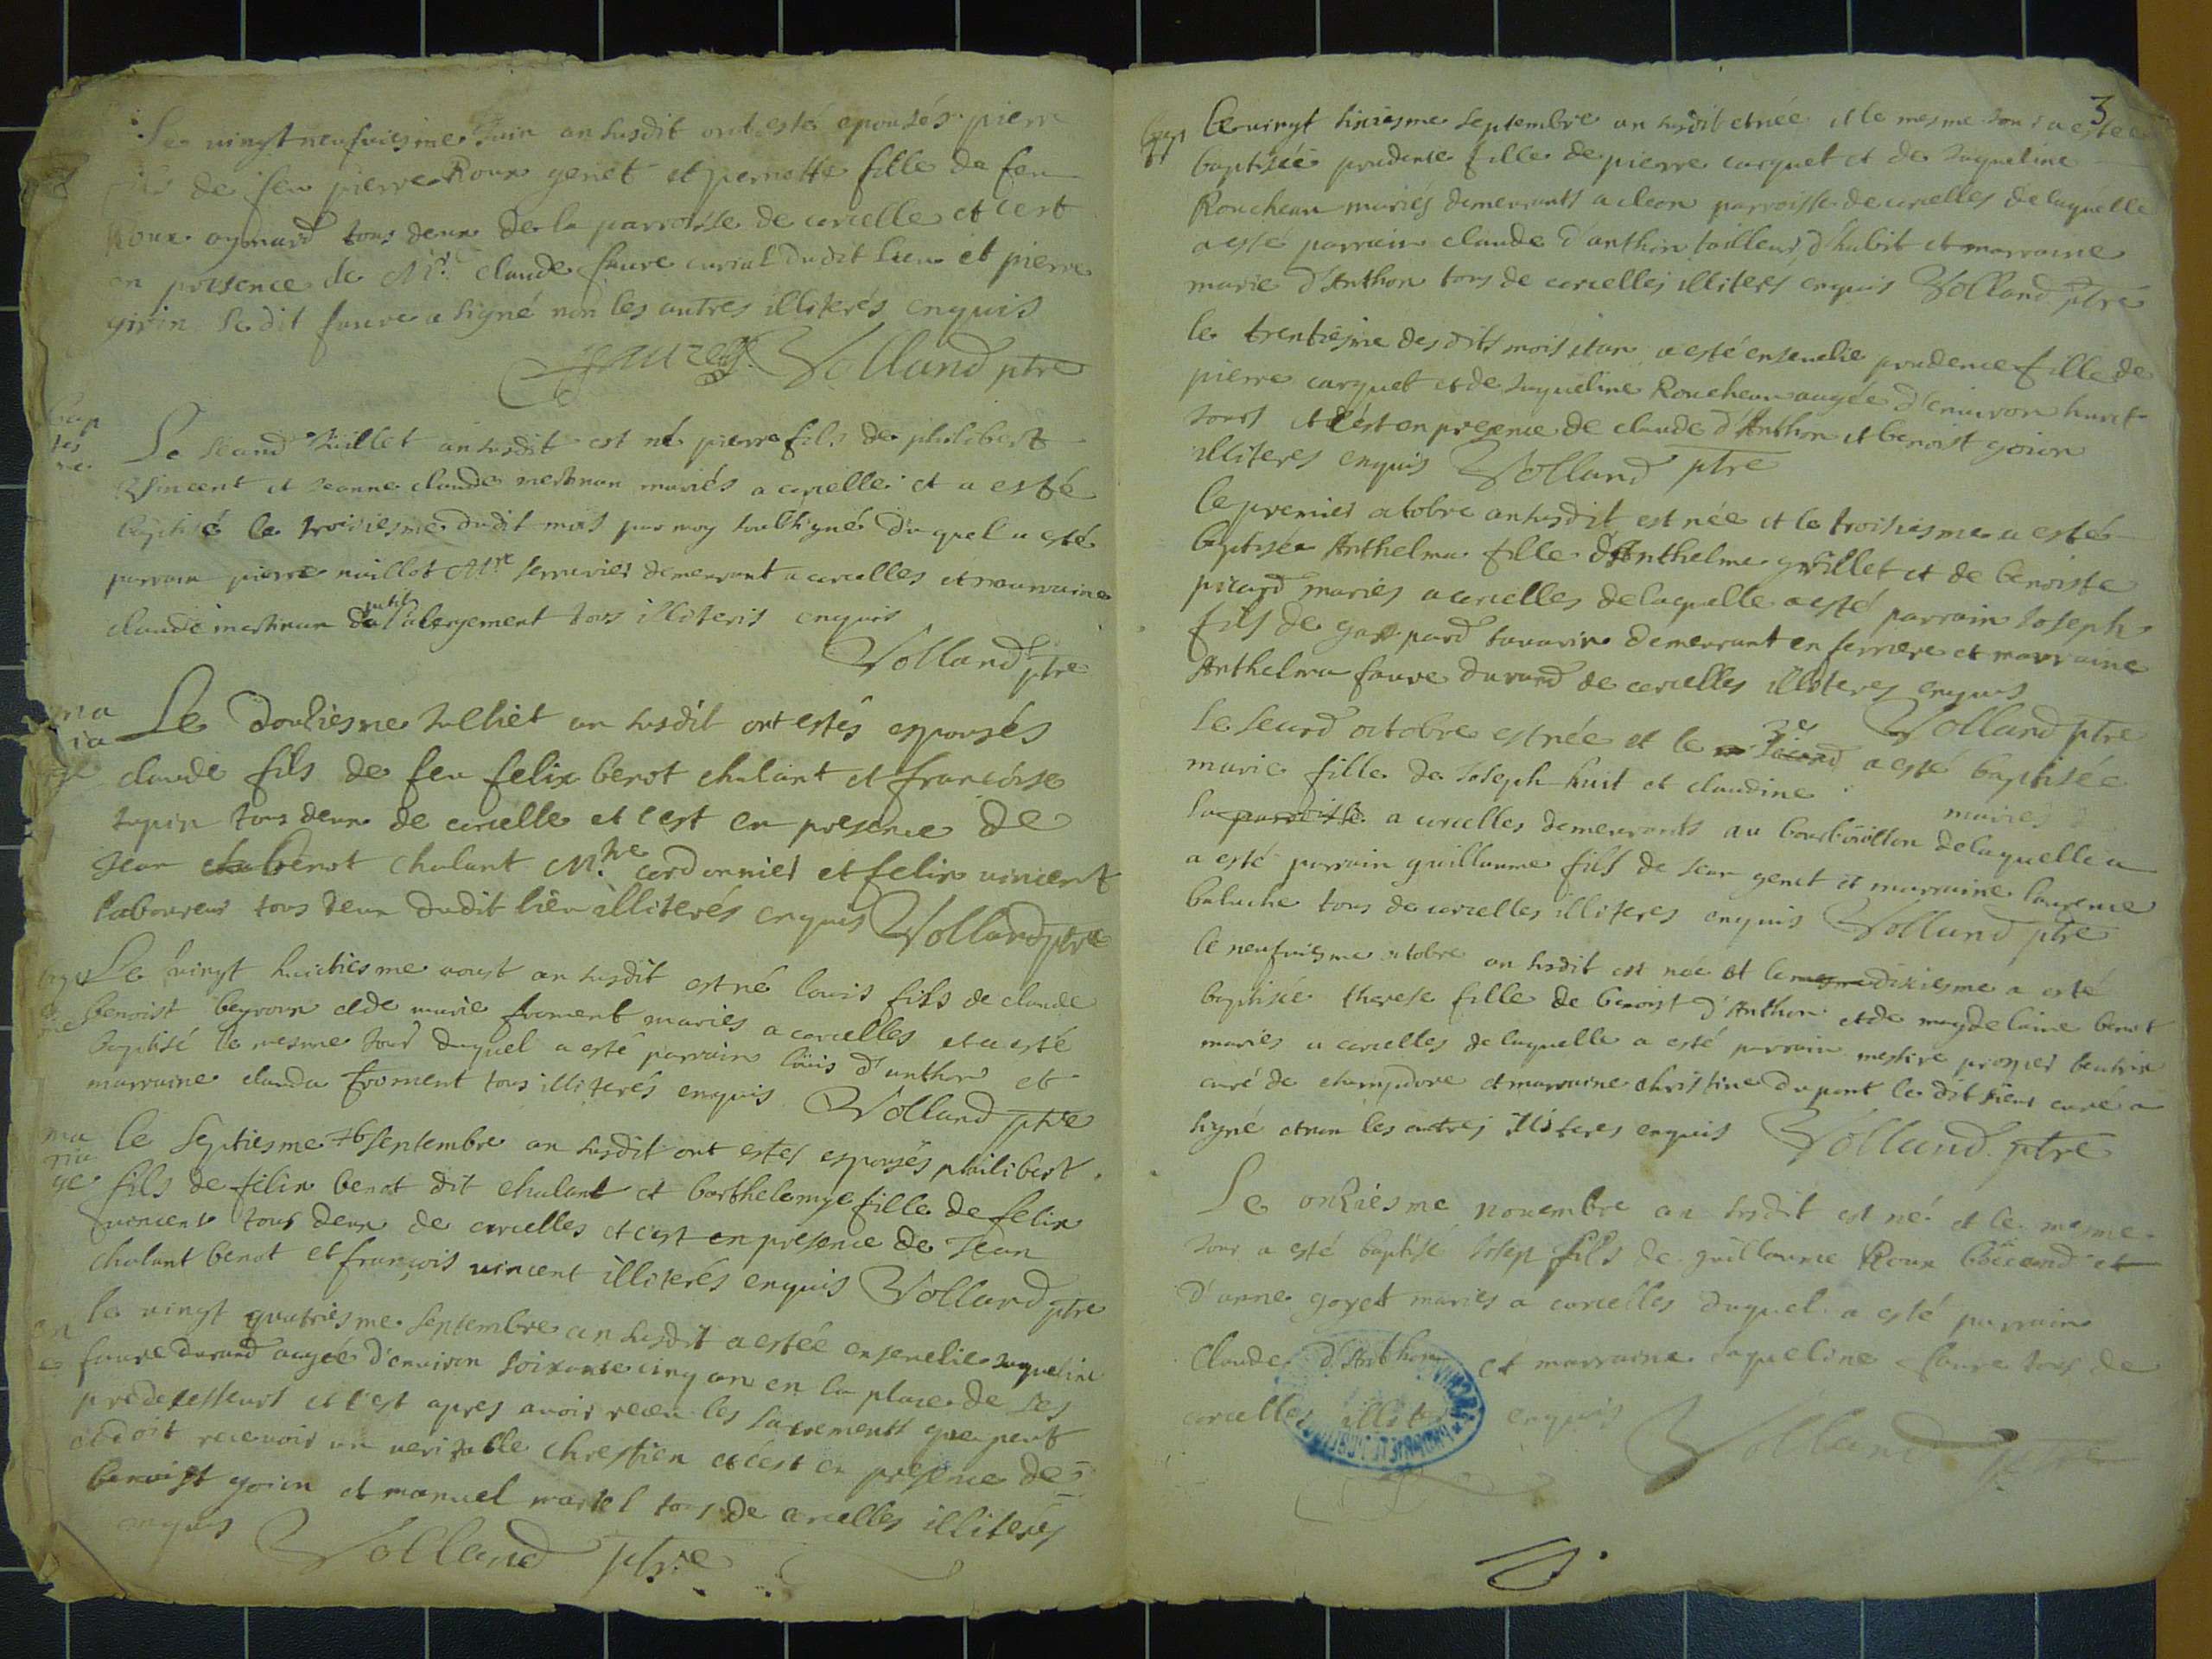 Le vingt neufviesme Juin an susdit ont esté epousés pierre
fils de feu pierre Roux genet et pernette fille de feu
Roux aymard tous deux de la parroisse de corcelle et c'est
en presence de Mr. claude faure curial dudit lieu et pierre
girin le dit fauve a signé non les autres illiterés enquis
Volland ptre
bap
tes
me
Le second Juillet an susdit est né pierre fils de philibert
Vincent et Jeanne claude mertinan mariés a corcelle et a esté
baptisé le troisiesme dudit mois par moy soubsigné duquel a esté
parrain pierre nuillot Mre serrurier demeurant a corcelles et marraine
claude mertinan du petit abergement tous illiteris enquis
Volland ptre
ma
ria
ge
Le douziesme Julliet an susdit ont estés espousés
claude fils de feu felix benot chalant et francoise
tupin tous deux de corcelle et c'est en presence de
Jean cha benot chalant Mre cordonnier et felix vincent
laboureur tous deux dudit lieu illiterés enquis Volland ptre
Le vingt huictiesme aoust an susdit est né louis fils de claude
benoist beyron et de marie froment mariés a corcelles et a esté
baptisé le mesme Jour duquel a esté parrain louis d'anthon et
marraine clauda froment tous illiterés enquis Volland ptre
ma
ria
ge
le septiesme 7b septembre an susdit ont estes espousés philibert
fils de felix benot dit chalant et barthelemye fille de felix
vincent tous deux de corcelles et c'est en presence de Jean
chalant benot et françois vincent illiterés enquis Volland ptre
le vingt quatriesme septembre an susdit a estée ensevelie Jaqueline
fauve durand augée d'environ soixante cinq ans en la place de ses
predecesseurs et c'est apres avoir receu les sacrements que peut
et doit recevoir un veritable chrestien et c'est en presence de
benoist goion et manuel martel tous de corcelles illiterés
enquis Volland ptre
3
bap
Le vingt sixiesme septembre an susdit et née et le mesme Jour a estée
baptisée prudence fille de pierre carquet et de Jaqueline
Roucheux mariés demeurants a cleon parroisse de corcelles de laquelle
a esté parrain claude d'anthon tailleur d'habit et marraine
marie d'Anthon tous de corcelles illiteres enquis Volland ptre
le trentiesme des dits mois et an a esté ensevelie prudence fille de
pierre carquet et de Jaqueline Roucheux augée d'environ huict
Jours et c'est en presence de claude d'Anthon et benoist goion
illiteres enquis Volland ptre
le premier octobre an susdit est née et le troisiesme a esté
baptisée Anthelma fille d'Anthelme grillet et de benoiste
picard mariés a corcelles de laquelle a esté parrain Joseph
fils de gaspard savarin demeurant en ferriere et marraine
Anthelma fauve durand de corcelles illiteres enquis
Volland ptre
Le second octobre est née et le 3e second a esté baptisée
marie fille de Joseph huit et claudine mariés
la parroisse a corcelles demeurants au bourbouillon de laquelle a
a esté parrain guillaume fils de Jean genet et marraine laurence
baluche tous de corcelles illiteres enquis Volland ptre
le neufviesme octobre an susdit est née et le mesme dixiesme a esté
baptisée therese fille de benoist d'Anthon et de magdelaine benot
mariés a corcelles de laquelle a esté parrain messire prosper beatrix
curé de champdore et marraine christine dupont le dit sieur curé a
signé et non les autres illiteres enquis Volland ptre
Le onziesme novembre an susdit est né et le mesme
Jour a esté baptisé Josep fils de guillaume Roux et
d'anne goyet mariés a corcelles duquel a esté parrain
Claude d'Anthon et marraine Jaqueline fauve tous de
corcelles illiteres enquis Volland ptre